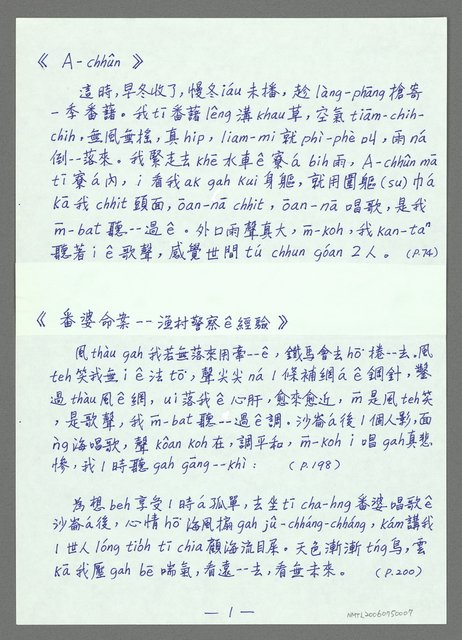 《 A-chhûn 》
這時,早冬收了,慢冬iáu未播,趁làng-phāng搶寄
一季番藷。我tī番藷lêng溝khau草,空氣tiām-chih-
chih,無風無搖,真hip,liam-mi就phi-phè叫,雨ná
倒--落來。我緊走去khē水車ê寮á bih雨,A-chhûn mā
tī寮á內,i看我ak gah kui身軀,就用圍軀(su)巾á
kā我chhit頭面,ōan-nā chhit,ōan-nā唱歌,是我
m̄-bat聽--過ê。外口雨聲真大,m̄-koh,我kan-taⁿ
聽著i ê歌聲,感覺世間tú chhun góan 2人。 (P.74)
《 番婆命案--漁村警察ê經驗 》
風thàu gah我若無落來用牽--ê,鐵馬會去hō͘捲--去。風
teh笑我無i ê法tō͘,聲尖尖ná 1條補網á ê鋼針,鑿
過thàu風ê網,ui落我ê心肝,愈來愈近,m̄是風teh笑
,是歌聲,我m̄-bat聽--過ê調。沙崙á後1個人影,面
ǹg海唱歌,聲kôan koh在,調平和,m̄-koh i唱gah真悲
慘,我1時聽gah gāng--khì: (P.198)
為想beh享受1時á孤單,去坐tī cha-hng番婆唱歌ê
沙崙á後,心情hō͘海風搧gah jû-chháng-chháng,kám講我
1世人lóng tio̍h tī chia顧海流目屎。天色漸漸tńg烏,雲
kā我壓gah bē喘氣,看遠--去,看無未來。 (P.200)
— 1 —
NMTL20060750007